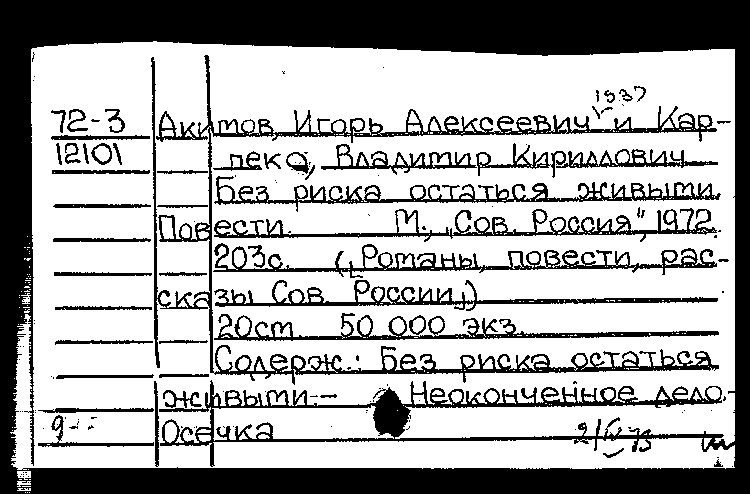 1937
72-3 Акимов, Игорь Алексеевич и Кар-
12101 пеко, Владимир Кириллович
Без риска остаться живыми.
Повести. М., „Сов. Россия", 1972.
203с. („Романы, повести, рас-
сказы Сов. России„)
20ст. 50 000 экз.
Содерж.: Без риска остаться
живыми.— Неоконченное дело.-
Осечка 2/IV 73